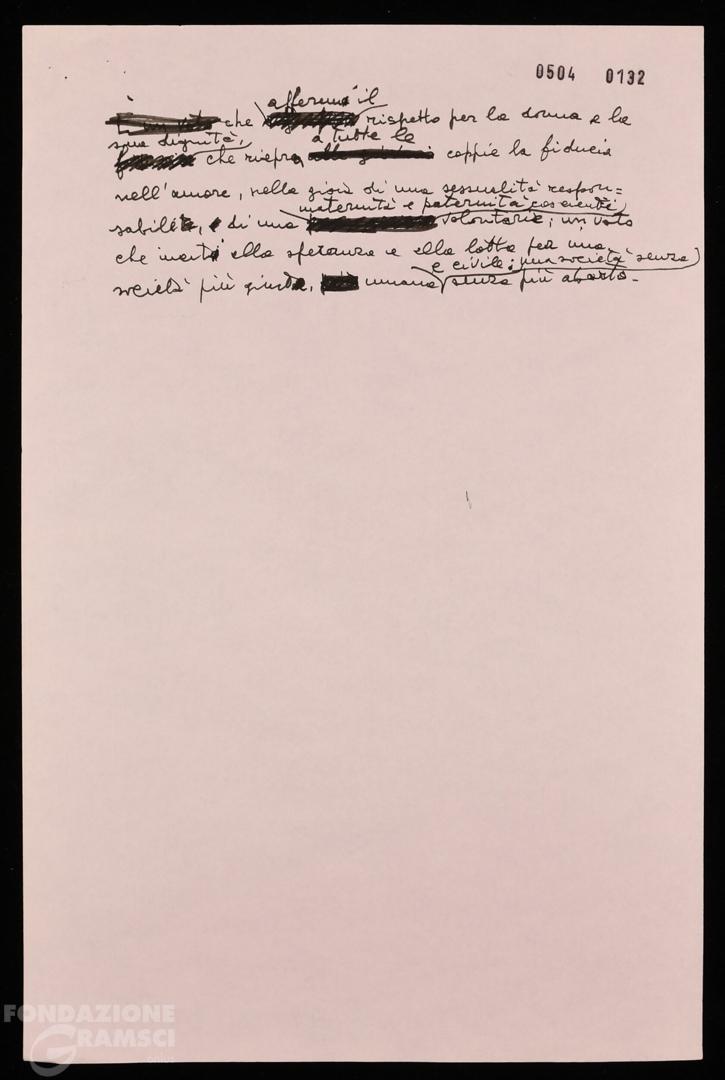 0504 0132
afferma il
che rispetto per la donna e la
sua dignità,
a tutte le
che riapra coppie la fiducia
nell'amore, nella gioia di una sessualità respon=
maternità e paternità coscienti
sabile, di una volontaria; un voto
che inciti alla speranza e alla lotta per una
e civile: una società senza
società più giusta, umana senza più aborto.
FONDAZIONE
GRAMSCI
onlus